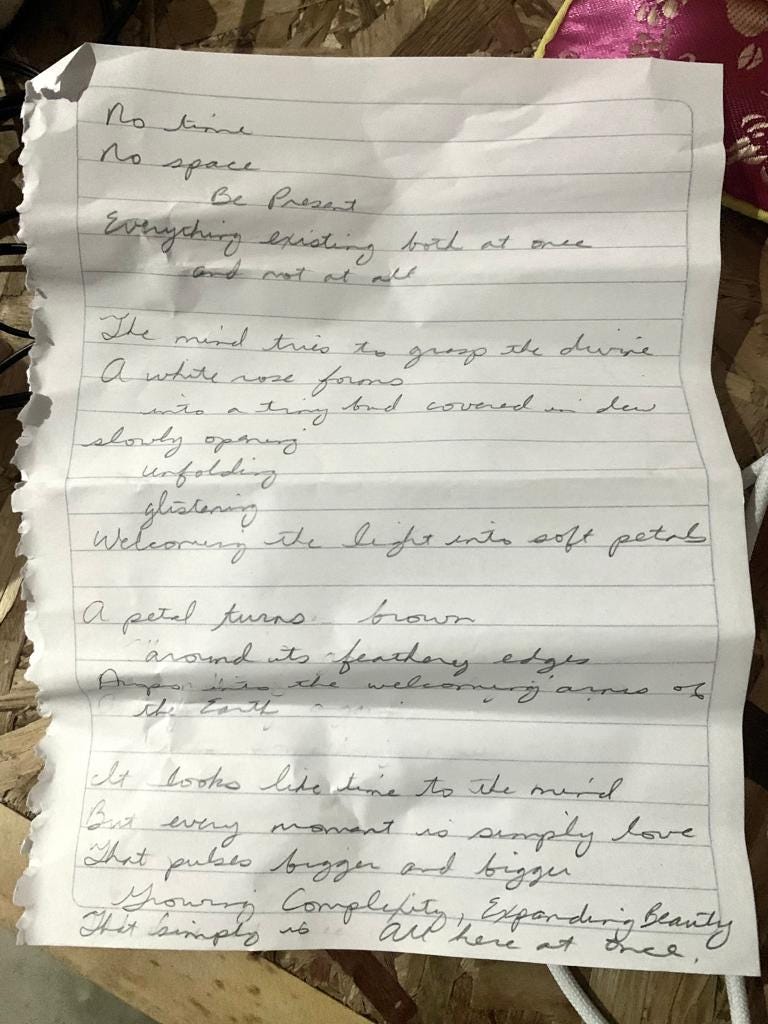 No time
No space
Be Present
Everything existing both at once
and not at all
The mind tries to grasp the divine
A white rose forms
into a tiny bud covered in dew
slowly opening
unfolding
glistening
Welcoming the light into soft petals
A petal turns brown
around its feathery edges
Drops into the welcoming arms of
the Earth
It looks like time to the mind
But every moment is simply love
That pulses bigger and bigger
Growing Complexity, Expanding Beauty
That simply is All here at once.